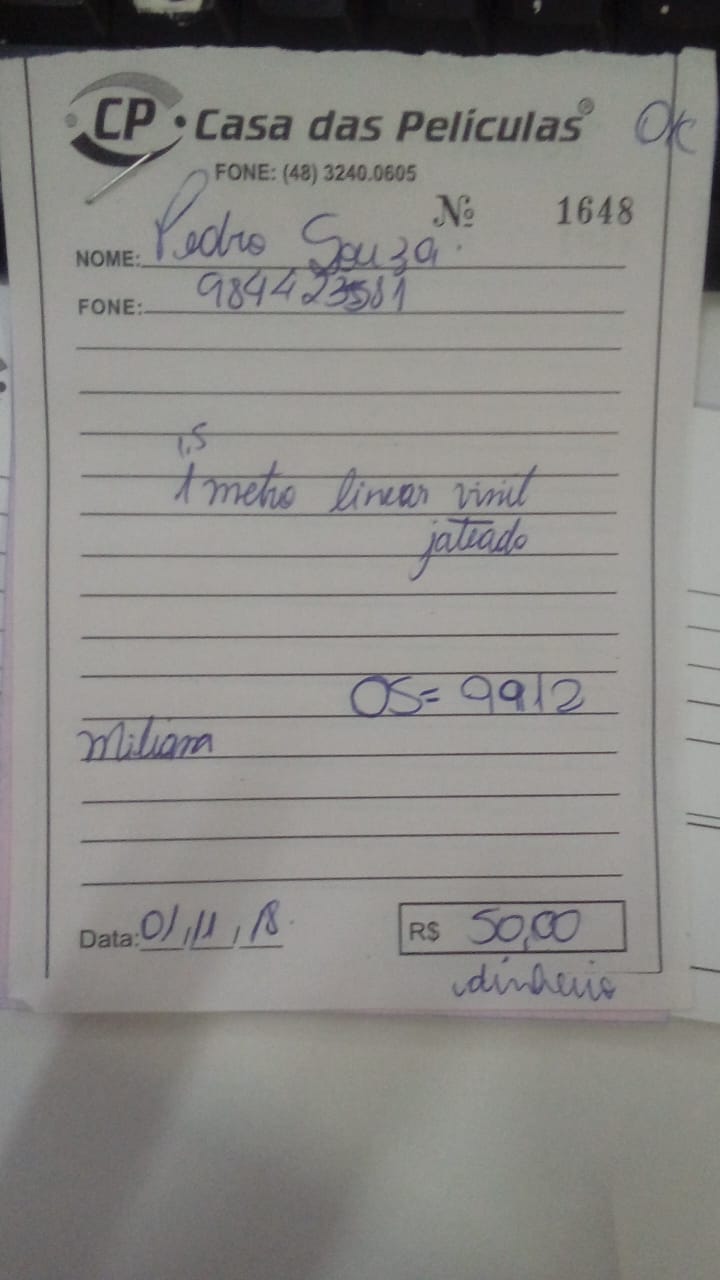 CP Casa das Películas® Ok
FONE: (48) 3240.0605
Nº 1648
NOME: Pedro Souza
FONE: 984423581
1,5
1 metro linear vinil
jateado
OS= 9912
Miliana
Data: 01/11/18 R$ 50,00
dinheiro